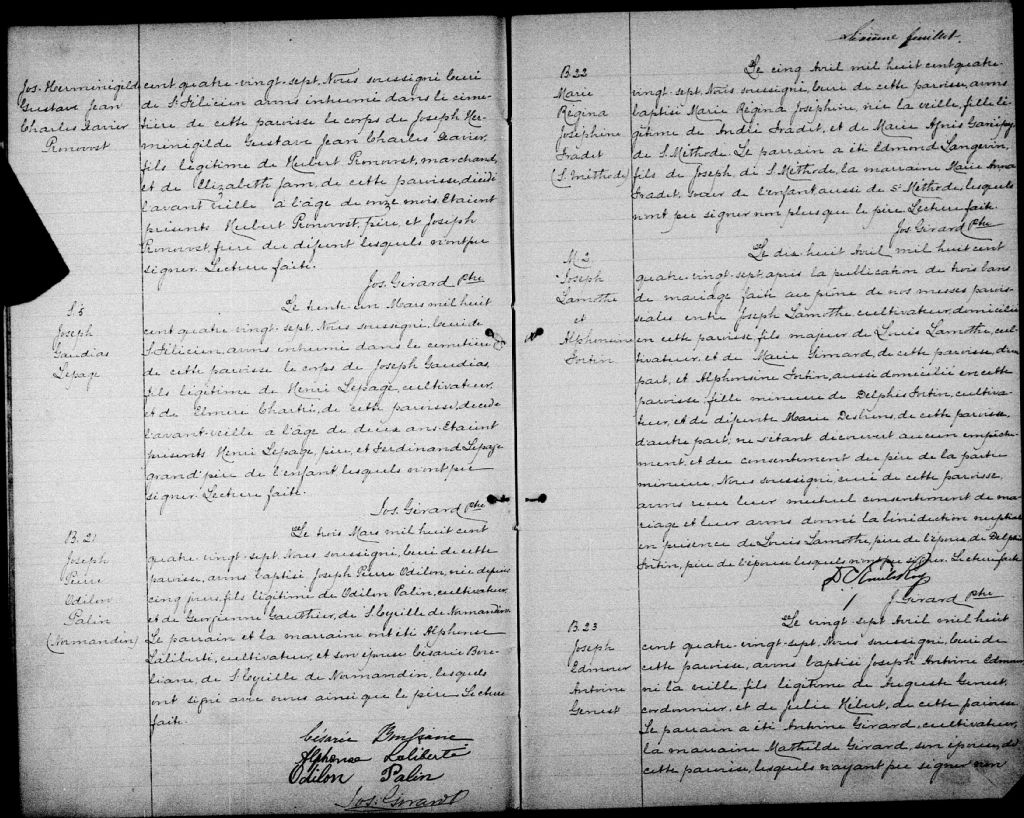 Jos. Herminigilde
Gustave Jean
Charles Xavier
Ronovost
cent quatre-vingt-sept, Nous soussigné, Curé
de St Félicien avons inhumé dans le cime-
tière de cette paroisse le corps de Joseph Her-
minigilde Gustave Jean Charles Xavier,
fils légitime de Hubert Ronovost, marchand,
et de Elizabeth Jam, de cette paroisse, décédé
l'avant veille à l'âge de onze mois. Étaient
présents Hubert Ronovost, père, et Joseph
Ronovost, frère du défunt lesquels n'ont pu
signer. Lecture faite.
Jos. Girard Ptre
S. 5
Joseph
Gaudias
Lepage
Le trente-un Mars mil huit
cent quatre-vingt-sept, Nous soussigné, Curé de
St Félicien, avons inhumé dans le cimetière
de cette paroisse le corps de Joseph Gaudias,
fils légitime de Henri Lepage, cultivateur,
et de Elmire Chartré, de cette paroisse, décédé
l'avant-veille à l'âge de deux ans. Étaient
présents Henri Lepage, père, et Ferdinand Lepage
grand'père de l'enfant lesquels n'ont pu
signer. Lecture faite.
Jos. Girard Ptre
B. 21
Joseph
Pierre
Odilon
Palin
(Normandin)
Le trois Mars mil huit cent
quatre-vingt-sept, Nous soussigné, Curé de cette
paroisse, avons baptisé Joseph Pierre Odilon, né depuis
cinq jours, fils légitime de Odilon Palin, cultivateur,
et de Georgienne Gauthier, de St Cyrille de Normandin.
Le parrain et la marraine ont été Alphonse
Laliberté, cultivateur, et son épouse Césarie Bou-
liane, de St Cyrille de Normandin, lesquels
ont signé avec nous ainsi que le père. Lecture
faite.
Césarie
Alphonse Laliberté
Odilon Palin
Jos. Girard P
Sixième feuillet.
B 22
Marie
Régina
Joséphine
Fradet
(S. Méthode)
Le cinq Avril mil huit cent quatre-
vingt-sept, Nous soussigné, Curé de cette paroisse, avons
baptisé Marie Régina Joséphine, née la veille, fille lé-
gitime de André Fradet, et de Marie Agnès Gariépy
de S. Méthode. Le parrain a été Edmond Langevin,
fils de Joseph, de S. Méthode, la marraine Marie Anna
Fradet, soeur de l'enfant aussi de St Méthode, lesquels
n'ont pu signer non plus que le père. Lecture faite.
Jos. Girard Ptre
M. 2.
Joseph
Lamothe
et
Alphonsine
Fortin
Le dix-huit Avril mil huit cent
quatre-vingt-sept, après la publication de trois bans
de mariage faite au prône de nos messes parois-
siales entre Joseph Lamothe, cultivateur, domicilié
en cette paroisse, fils majeur de Louis Lamothe, cul-
tivateur, et de Marie Simard, de cette paroisse, d'une
part, et Alphonsine Fortin, aussi domiciliée en cette
paroisse, fille mineure de Delphis Fortin, cultiva-
teur, et de défunte Marie Desbiens, de cette paroisse,
d'autre part, ne s'étant découvert aucun empêche-
ment, et du consentement du père de la partie
mineure, Nous soussigné, curé de cette paroisse,
avons reçu leur mutuel consentement de ma-
riage et leur avons donné la bénédiction nuptiale
en présence de Louis Lamothe, père de l'époux, de Delphis
Fortin, père de l'épouse lesquels n'ont pu signer. Lecture faite.
J. Girard Ptre
B 23
Joseph
Edmour
Antoine
Genest
Le vingt-sept Avril mil huit
cent quatre-vingt-sept, Nous soussigné, Curé de
cette paroisse, avons baptisé Joseph Antoine Edmour
né la veille, fils légitime de Auguste Genest,
cordonnier, et de Julie Hébert, de cette paroisse.
Le parrain a été Antoine Girard, cultivateur,
la marraine Mathilde Girard, son épouse, de
cette paroisse, lesquels n'ayant pu signer non